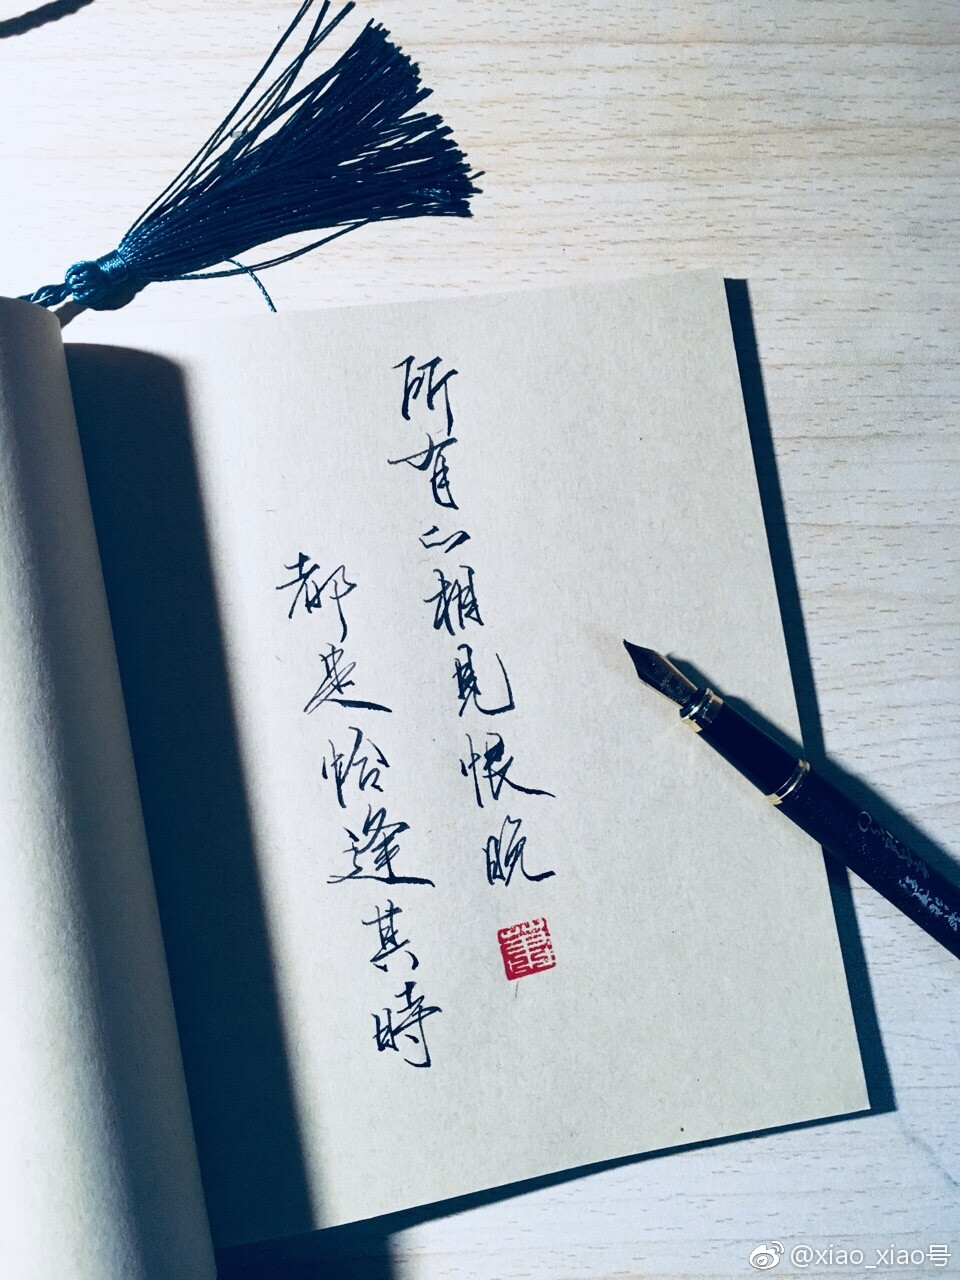 所有的相見恨晚
都是恰逢其時
@xiao_xiao号